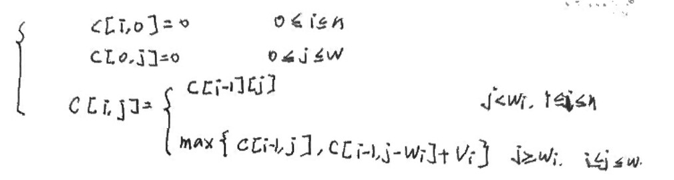 C[i,0]=0 0≤i≤n
C[0,j]=0 0≤j≤W
C[i,j]= { C[i-1][j] j<wi, 1≤i≤n
max{C[i-1,j],C[i-1,j-wi]+Vi} j≥wi, i≤j≤w.